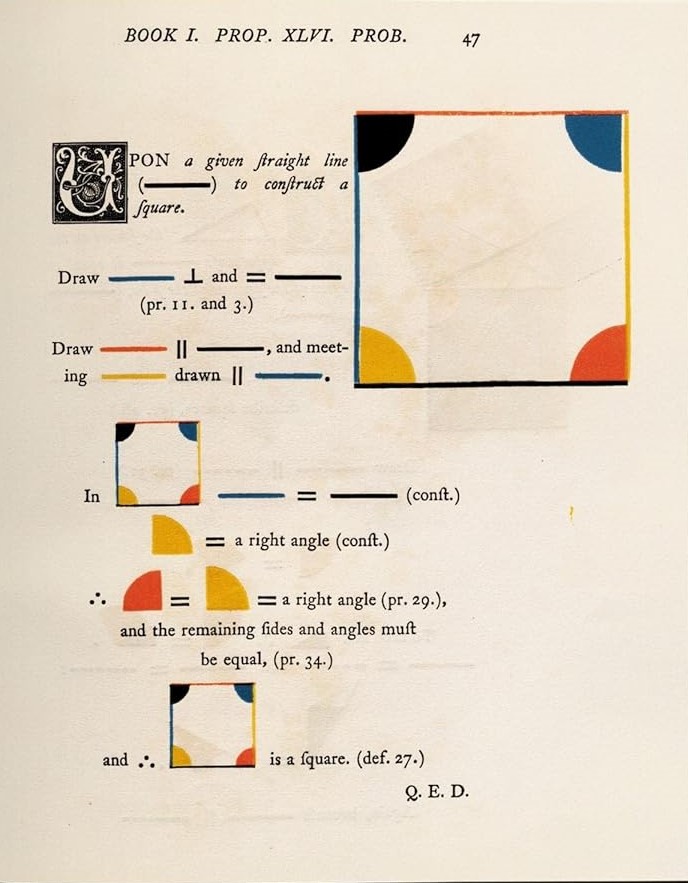 BOOK I. PROP. XLVI. PROB. 47
UPON a given ſtraight line
( ) to conſtruct a
ſquare.
Draw ⊥ and =
(pr. 11. and 3.)
Draw || , and meet-
ing drawn || .
In = (conſt.)
= a right angle (conſt.)
∴ = = a right angle (pr. 29.),
and the remaining ſides and angles muſt
be equal, (pr. 34.)
and ∴ is a ſquare. (def. 27.)
Q. E. D.